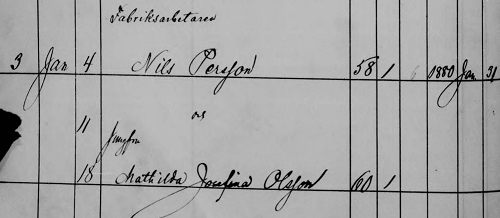 Fabriksarbetaren
3 Jan 4 Nils Persson 58 1 6 1880 Jan 31
11 och
Jungfru
18 Mathilda Josefina Olsson 60 1